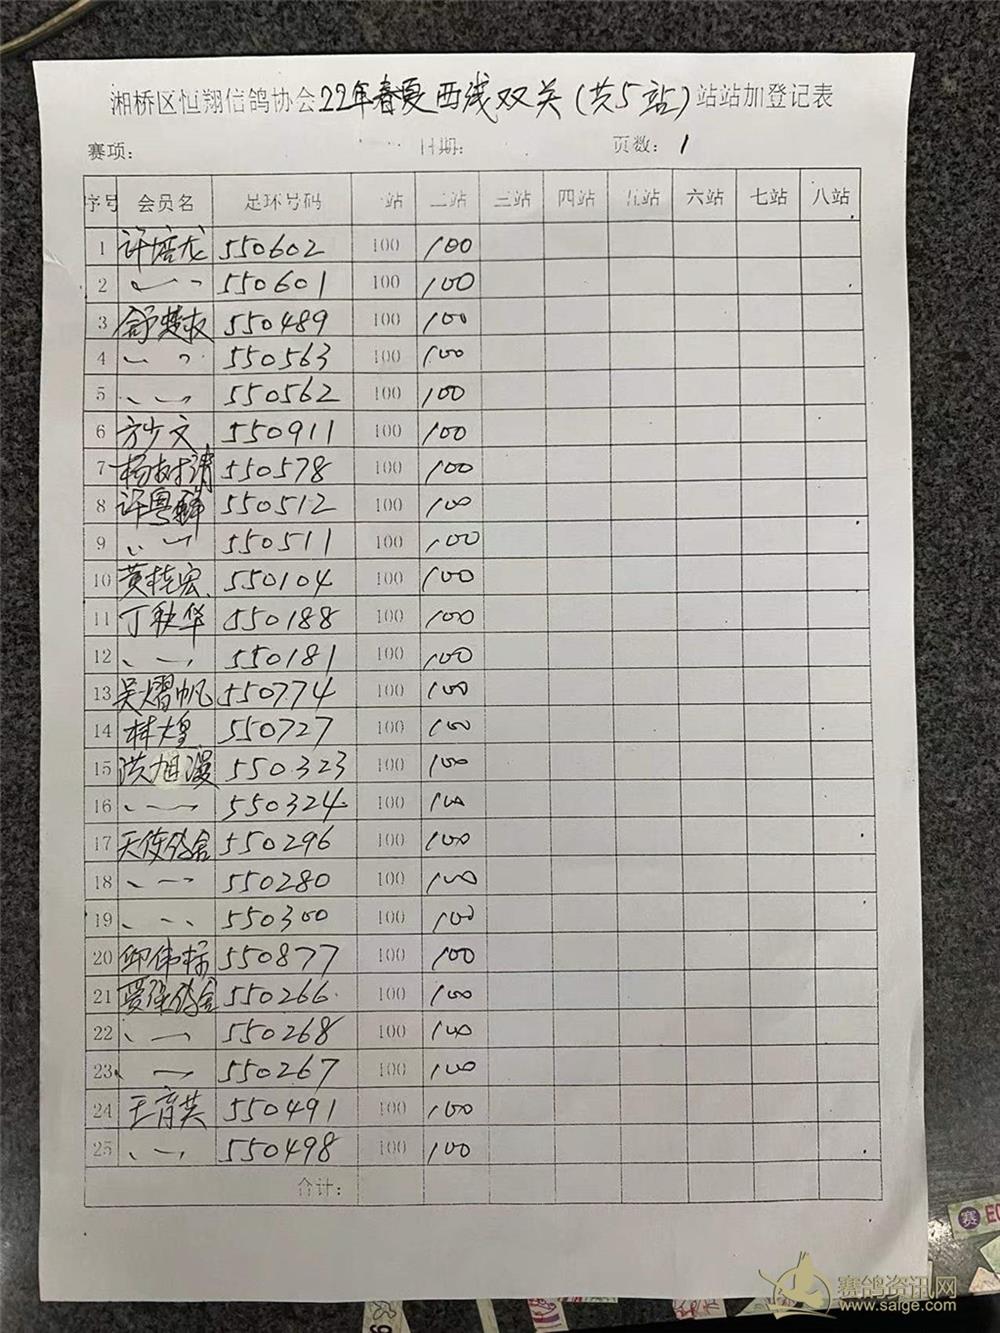 湘桥区恒翔信鸽协会22年春夏西线双关(共5站)站站加登记表
赛项: 日期: 页数: 1
序号 会员名 足环号码 一站 二站 三站 四站 五站 六站 七站 八站
1 许培龙 550602 100 100
2 〃 550601 100 100
3 舒楚权 550489 100 100
4 〃 550563 100 100
5 〃 550562 100 100
6 方少文 550911 100 100
7 杨树清 550578 100 100
8 许粤 550512 100 100
9 〃 550511 100 100
10 黄桂宏 550104 100 100
11 丁秋华 550188 100 100
12 〃 550181 100 100
13 吴熠帆 550774 100 100
14 林大皇 550727 100 100
15 洪旭漫 550323 100 100
16 〃 550324 100 100
17 天使鸽舍 550296 100 100
18 〃 550280 100 100
19 〃 550300 100 100
20 邱伟标 550877 100 100
21 鸽舍 550266 100 100
22 〃 550268 100 100
23 〃 550267 100 100
24 王育英 550491 100 100
25 〃 550498 100 100
合计:
赛
赛鸽资讯网
www.saige.com